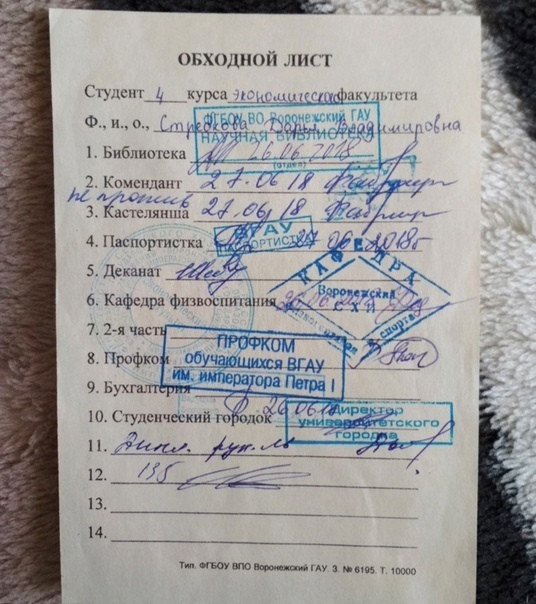 ОБХОДНОЙ ЛИСТ
Студент 4 курса экономическ факультета
Ф., и., о., Стрелкова Дарья Владимировна
ФГБОУ ВО Воронежский ГАУ
НАУЧНАЯ БИБЛИОТЕКА
1. Библиотека 26.06.2018
(отдел)
2. Комендант 27.06 18
не прожив
3. Кастелянша 27.06 18
4. Паспортистка 27 06 2018г
ВГАУ
ПАСПОРТИСТ
5. Деканат
КАФЕДРА
Воронежский
СХИ
физвоспитания
спорта
6. Кафедра физвоспитания 26.06
7. 2-я часть
ПРОФКОМ
обучающихся ВГАУ
им. императора Петра I
8. Профком
9. Бухгалтерия
26.06.18
10. Студенческий городок
Директор
университетского
городка
11. Дипл. рук-ль
12. 135
13.
14.
Тип. ФГБОУ ВПО Воронежский ГАУ. З. № 6195. Т. 10000